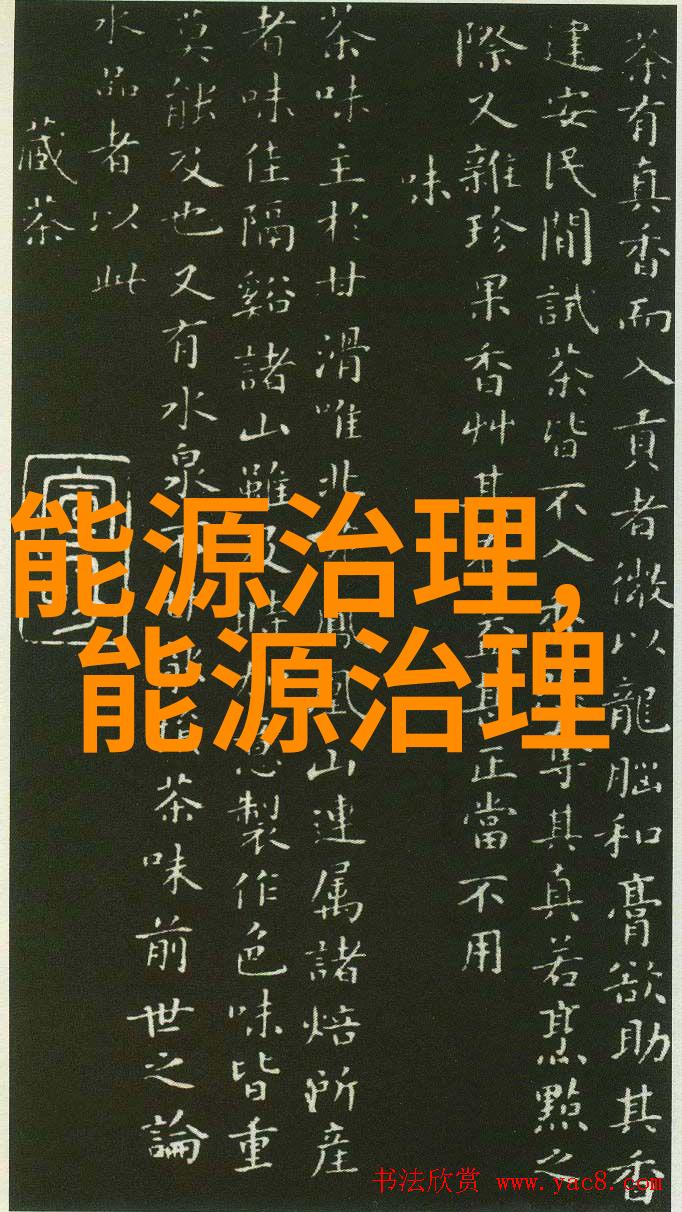 茶有真香而入貢者微以龍腦和膏欲助其香
建安民間試茶皆不入其真若烹點之
際又雜珍果香艸其正當不用
味
茶味主於甘滑唯北鳳凰山連属諸焙所產
者味佳隔谿諸山雖及時加意製作色味皆重
莫能及也又有水泉不茶味前世之論
水品者以此
藏茶
能源治理,
能源治理
书法欣赏 www.yac8.com